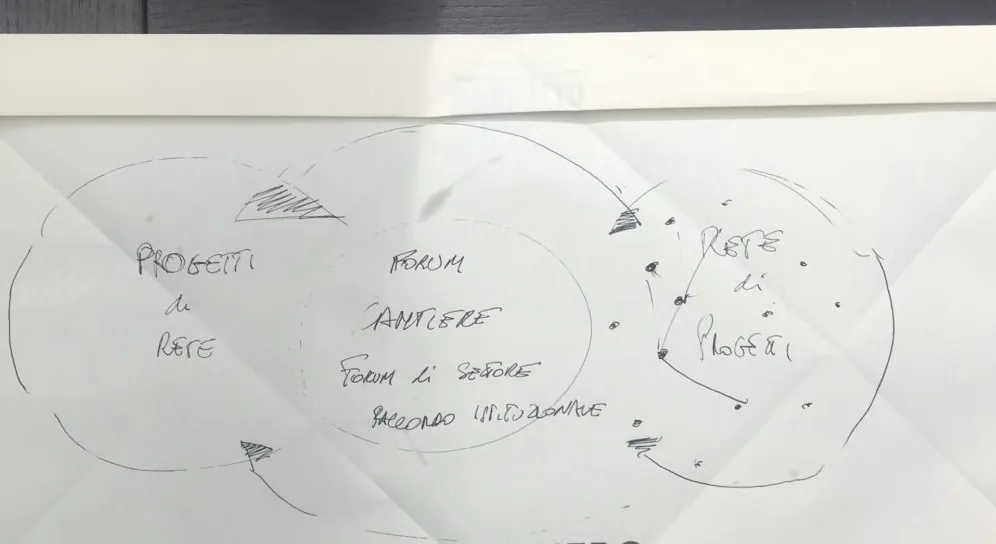 PROGETTI
di
RETE
FORUM
CANTIERE
FORUM di SETTORE
RACCORDO ISTITUZIONALE
RETE
di
PROGETTI